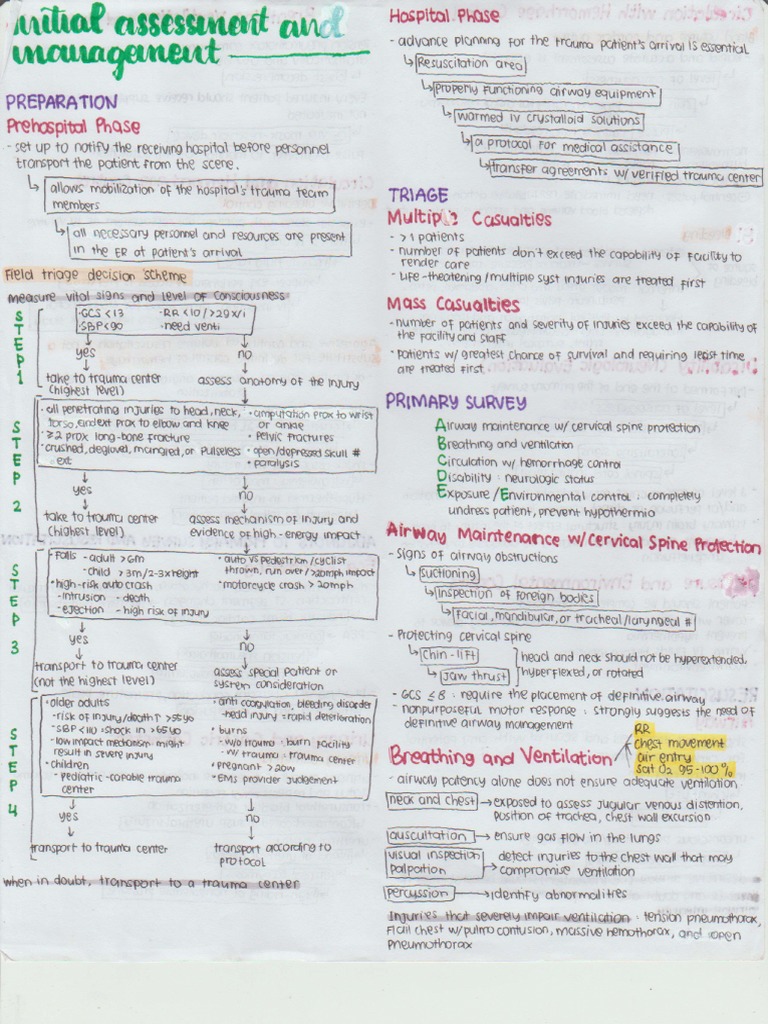 Initial assessment and
management
PREPARATION
Prehospital Phase
- set up to notify the receiving hospital before personnel
transport the patient from the scene.
↳ allows mobilization of the hospital's trauma team
members
↳ all necessary personnel and resources are present
in the ER at patient's arrival
Field triage decision scheme
measure vital signs and level of consciousness
STEP 1
·GCS <13 ·RR <10/>29x/i
·SBP<90 ·need venti
yes
no
take to trauma center
(highest level)
assess anatomy of the injury
STEP 2
·all penetrating injuries to head, neck,
torso, and ext prox to elbow and knee
·≥2 prox long-bone fracture
·crushed, degloved, mangred, or pulseless
ext
·amputation prox to wrist
or ankle
·pelvic fractures
·open/depressed skull #
·paralysis
yes
no
take to trauma center
(highest level)
assess mechanism of injury and
evidence of high-energy impact
STEP 3
·Falls - adult >6m
-child >3m/2-3xheight
·high-risk auto crash
-intrusion -death
-ejection -high risk of injury
·auto vs pedestrian/cyclist
thrown, run over/>20mph impact
·motorcycle crash >20mph
yes
no
transport to trauma center
(not the highest level)
assess special patient or
system consideration
STEP 4
·older adults
-risk of injury/death↑ >55yo
-SBP <110:shock in >65yo
-low impact mechanism might
result in severe injury
·children
-pediatric-capable trauma
center
·anti coagulation, bleeding disorder
-head injury:rapid deterioration
·burns
-w/o trauma: burn facility
-w/ trauma: trauma center
·pregnant >20w
·EMS provider judgement
yes
no
transport to trauma center
transport according to
protocol
when in doubt, transport to a trauma center
Hospital Phase
- advance planning for the trauma patient's arrival is essential
↳ Resuscitation area
↳ Properly functioning airway equipment
↳ warmed IV crystalloid solutions
↳ a protocol for medical assistance
↳ transfer agreements w/ verified trauma center
TRIAGE
Multiple Casualties
- >1 patients
- number of patients don't exceed the capability of facility to
render care
- life-theatening/multiple syst injuries are treated first
Mass Casualties
- number of patients and severity of injuries exceed the capability of
the facility and staff
- patients w/ greatest chance of survival and requiring least time
are treated first
PRIMARY SURVEY
Airway maintenance w/ cervical spine protection
Breathing and ventilation
Circulation w/ hemorrhage control
Disability : neurologic status
Exposure/Environmental control : completely
undress patient, prevent hypothermia
Airway Maintenance w/Cervical Spine Protection
- Signs of airway obstructions
↳ suctioning
↳ inspection of foreign bodies
↳ Facial, mandibular, or tracheal/laryngeal #
- Protecting cervical spine
↳ Chin-lift
↳ Jaw thrust
head and neck should not be hyperextended,
hyperflexed, or rotated
- GCS ≤8 : require the placement of definitive airway
- nonpurposeful motor response : strongly suggests the need of
definitive airway management
Breathing and Ventilation
RR
chest movement
air entry
Sat O2 95-100%
- airway patency alone does not ensure adequate ventilation
neck and chest → exposed to assess jugular venous distention,
position of trachea, chest wall excursion
auscultation → ensure gas flow in the lungs
visual inspection
palpation
→ detect injuries to the chest wall that may
compromise ventilation
percussion → identify abnormalities
Injuries that severely impair ventilation : tension pneumothorax,
flail chest w/pulmo contusion, massive hemothorax, and open
pneumothorax